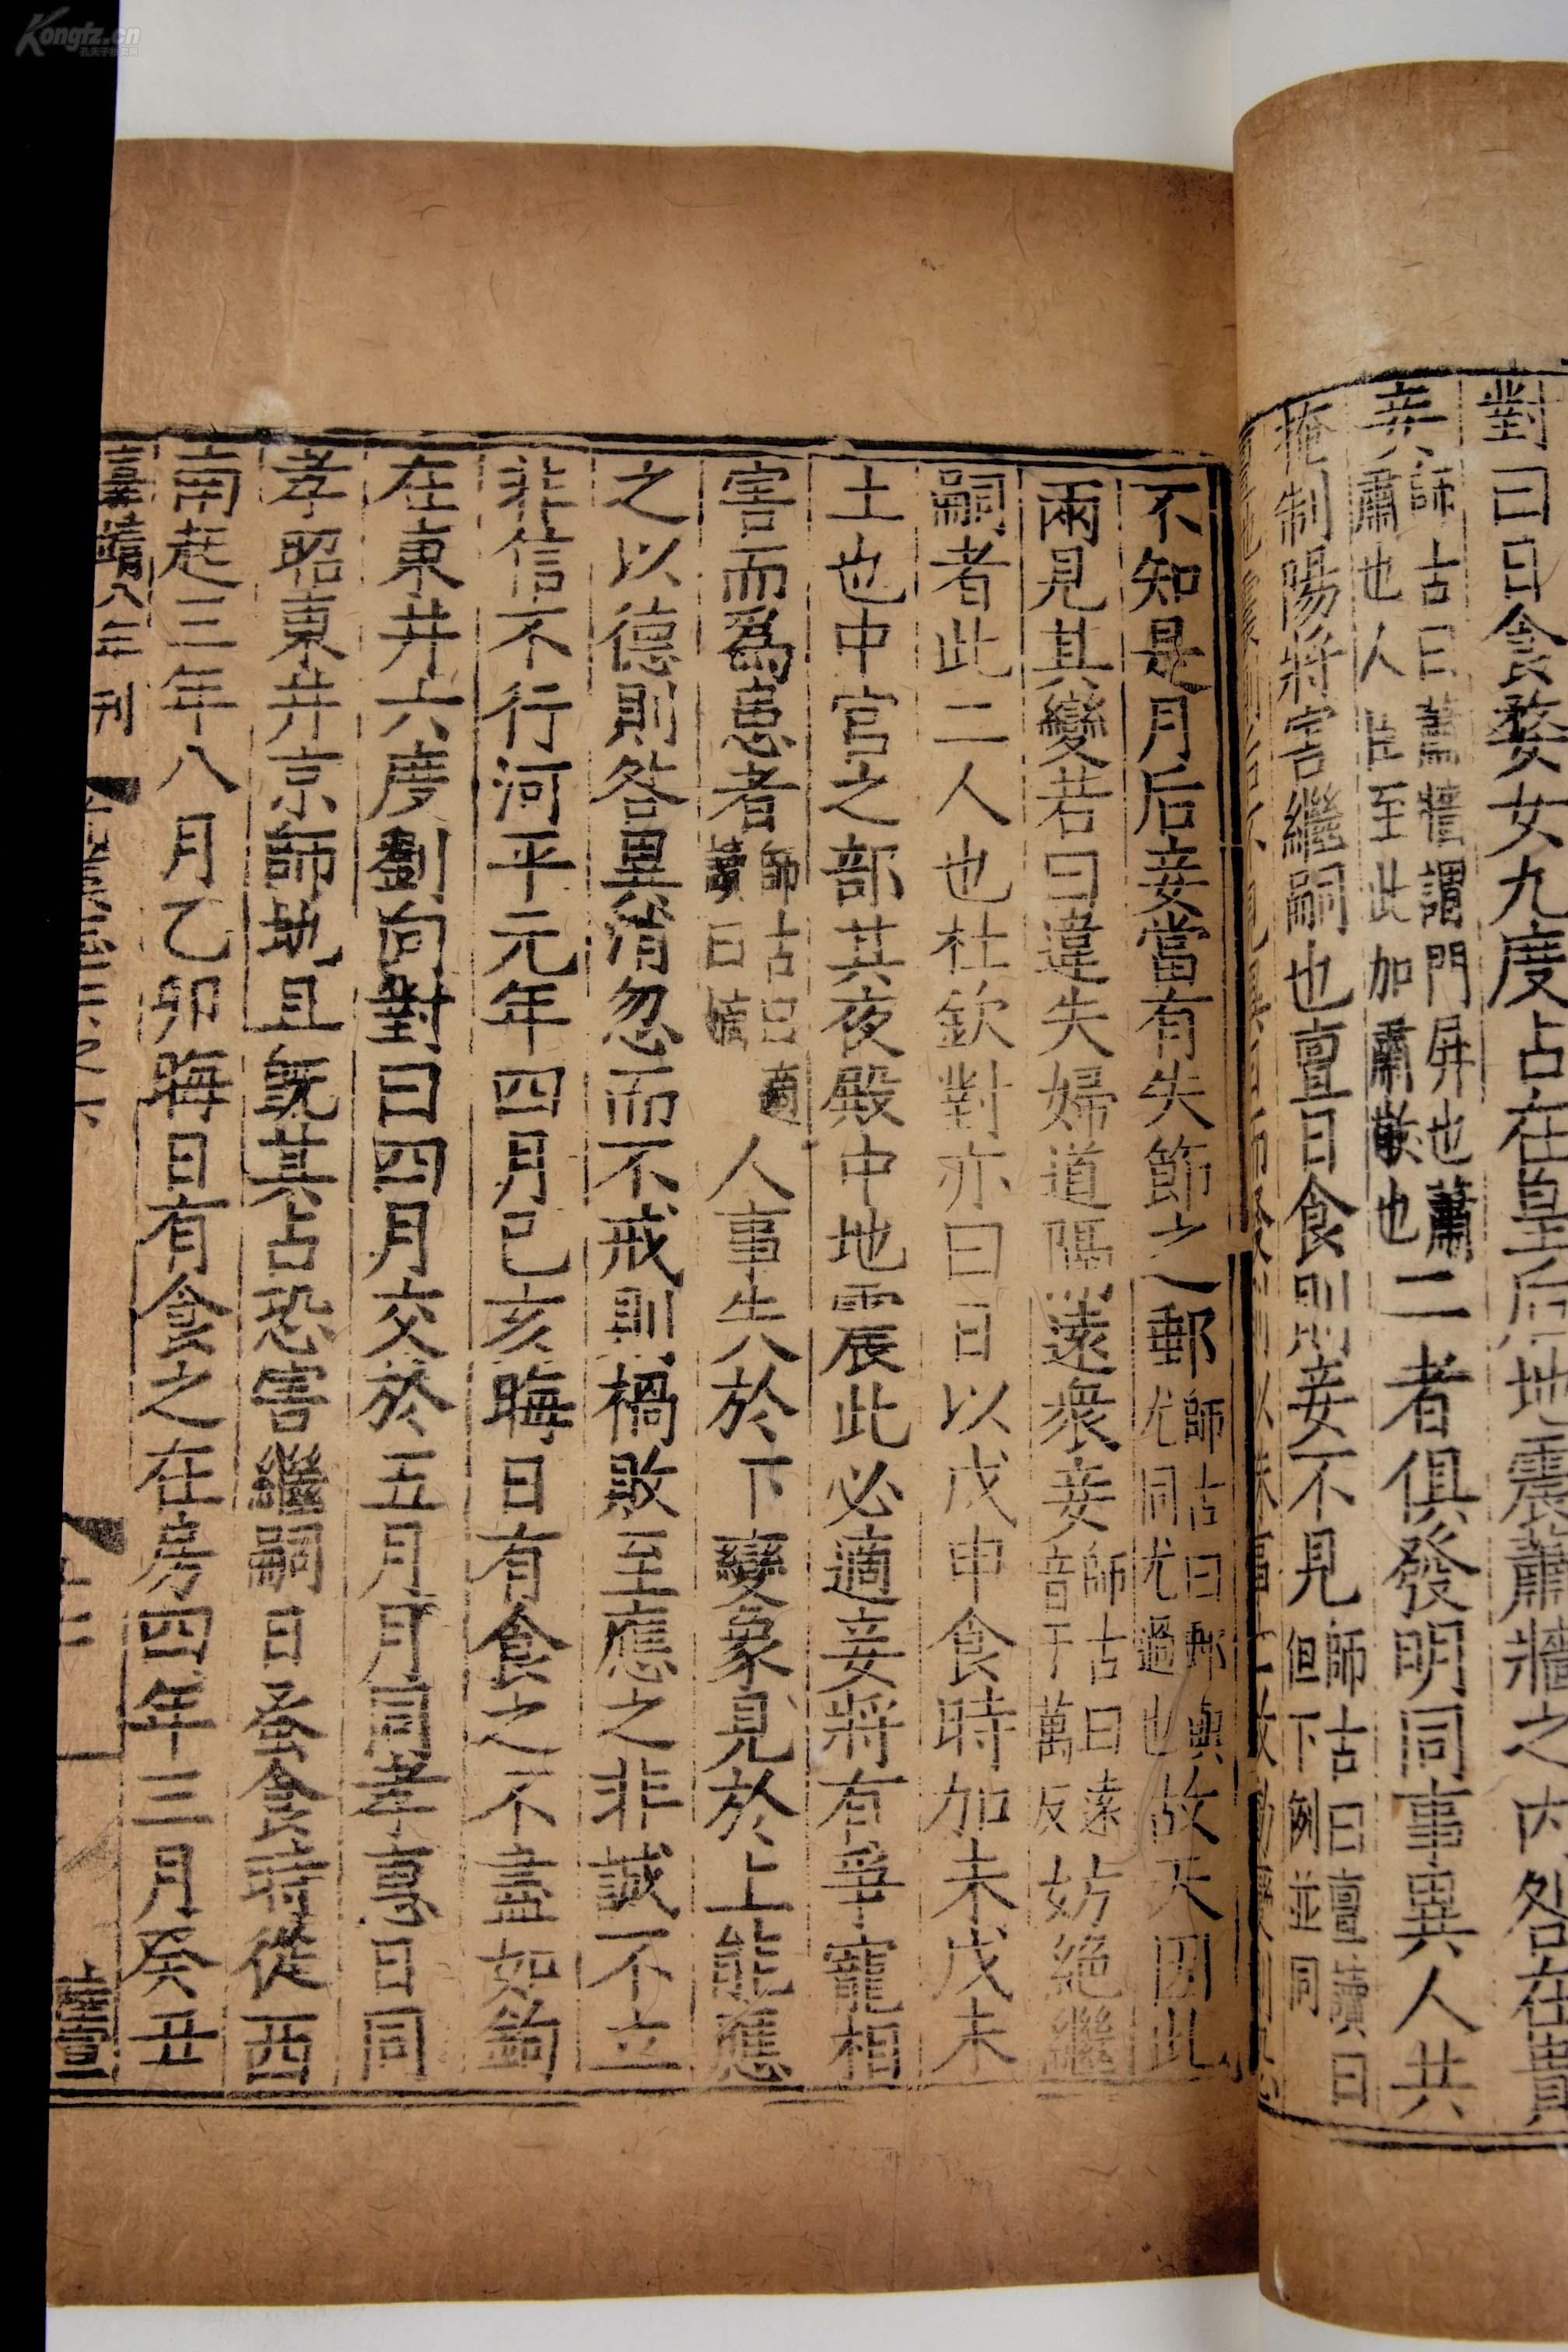 對曰日食婺女九度占在皇后地震蕭牆之內咎在貴
妾師古曰蕭牆謂門屏也蕭肅也人臣至此加肅敬也二者俱發明同事異人共
掩制陽將害繼嗣也亶日食則妾不見師古曰亶讀曰但下例並同
不知是月后妾當有失節之郵師古曰郵與尤同尤過也故天因此
兩見其變若曰違失婦道隔遠衆妾師古曰遠音于萬反妨絶繼
嗣者此二人也杜欽對亦曰日以戊申食時加未戊未
土也中宮之部其夜殿中地震此必適妾將有爭寵相
害而爲患者師古曰適讀曰嫡人事失於下變象見於上能應
之以德則咎異消忽而不戒則禍敗至應之非誠不立
非信不行河平元年四月己亥晦日有食之不盡如鉤
在東井六度劉向對曰四月交於五月月同孝惠日同
孝昭東井京師地且旣其占恐害繼嗣日蚤食時從西
南起三年八月乙卯晦日有食之在房四年三月癸丑
八年刊
Kongfz.cn